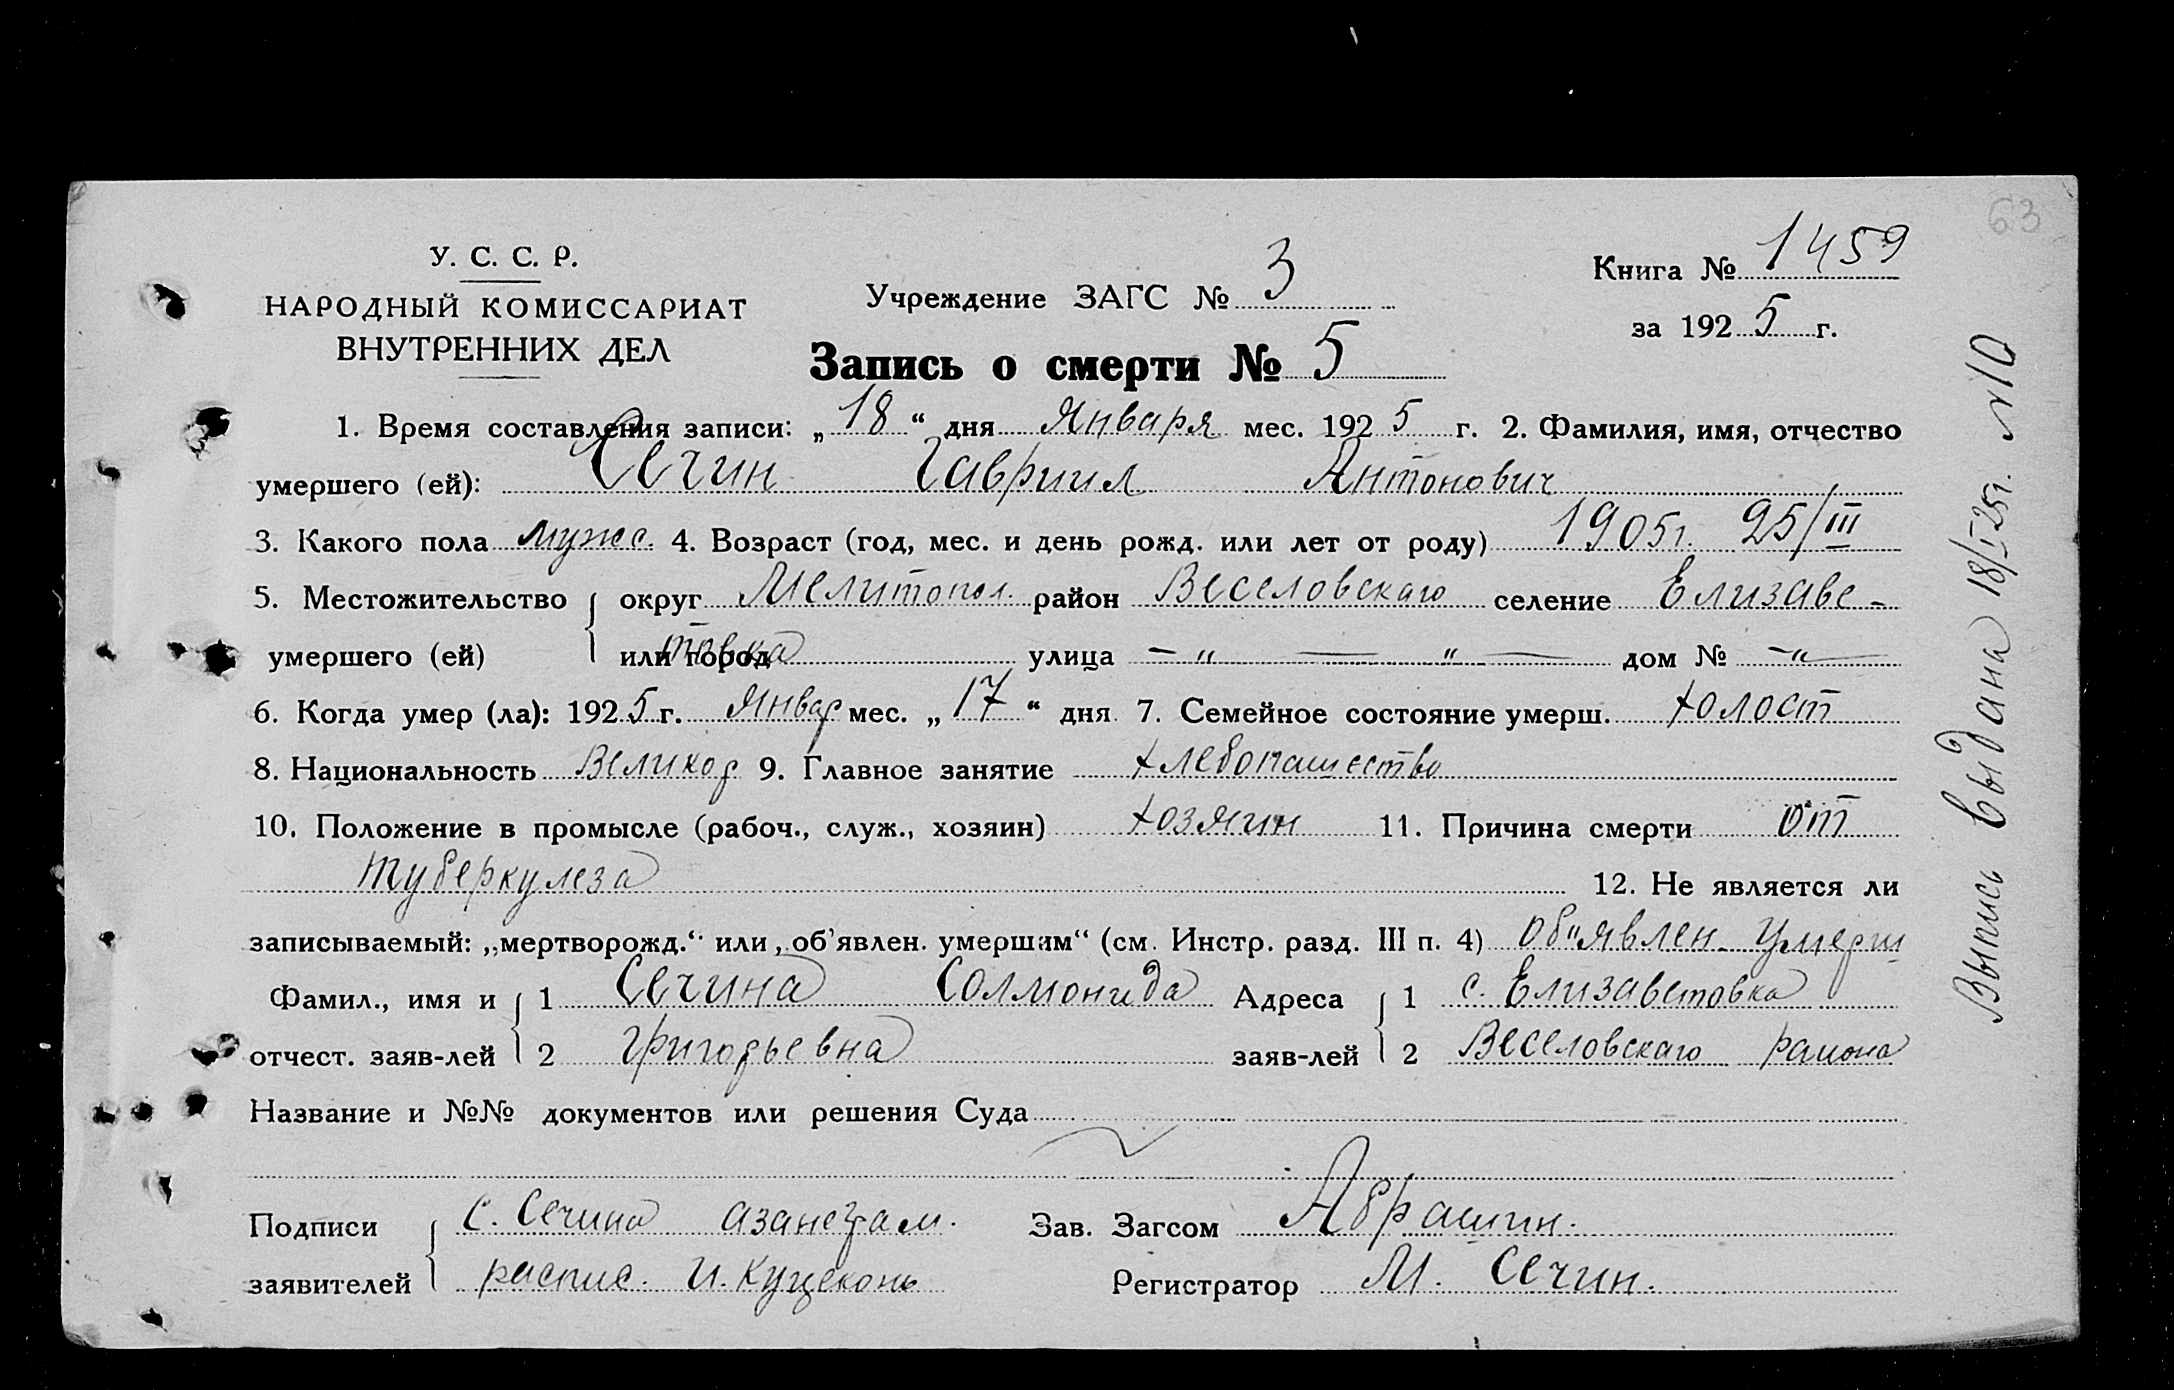 63
У. С. С. Р.
НАРОДНЫЙ КОМИССАРИАТ
ВНУТРЕННИХ ДЕЛ
Учреждение ЗАГС № 3
Книга № 1459
за 1925 г.
Запись о смерти № 5
1. Время составления записи: „18“ дня Января мес. 1925 г. 2. Фамилия, имя, отчество
умершего (ей): Сечин Гавриил Антонович
3. Какого пола мужс. 4. Возраст (год, мес. и день рожд. или лет от роду) 1905г. 25/III
5. Местожительство округ Мелитопол. район Веселовскаго селение Елизаве-
умершего (ей) или город товка улица -„ — „ — дом № -„-
6. Когда умер (ла): 1925 г. Январ мес. „17“ дня 7. Семейное состояние умерш. холост
8. Национальность Великор 9. Главное занятие хлебопашество
10. Положение в промысле (рабоч., служ., хозяин) хозяин 11. Причина смерти от
туберкулеза 12. Не является ли
записываемый: „мертворожд.“ или „об’явлен. умершим“ (см. Инстр. разд. III п. 4) об"явлен. умерш
Фамил., имя и 1 Сечина Солмонида Адреса 1 с. Елизаветовка
отчест. заяв-лей 2 Григорьевна заяв-лей 2 Веселовскаго района
Название и №№ документов или решения Суда
Подписи С. Сечина азанеграм. Зав. Загсом Абрашин.
заявителей распис. И. Регистратор М. Сечин.
Выпись выдана 18/I 25г. №10